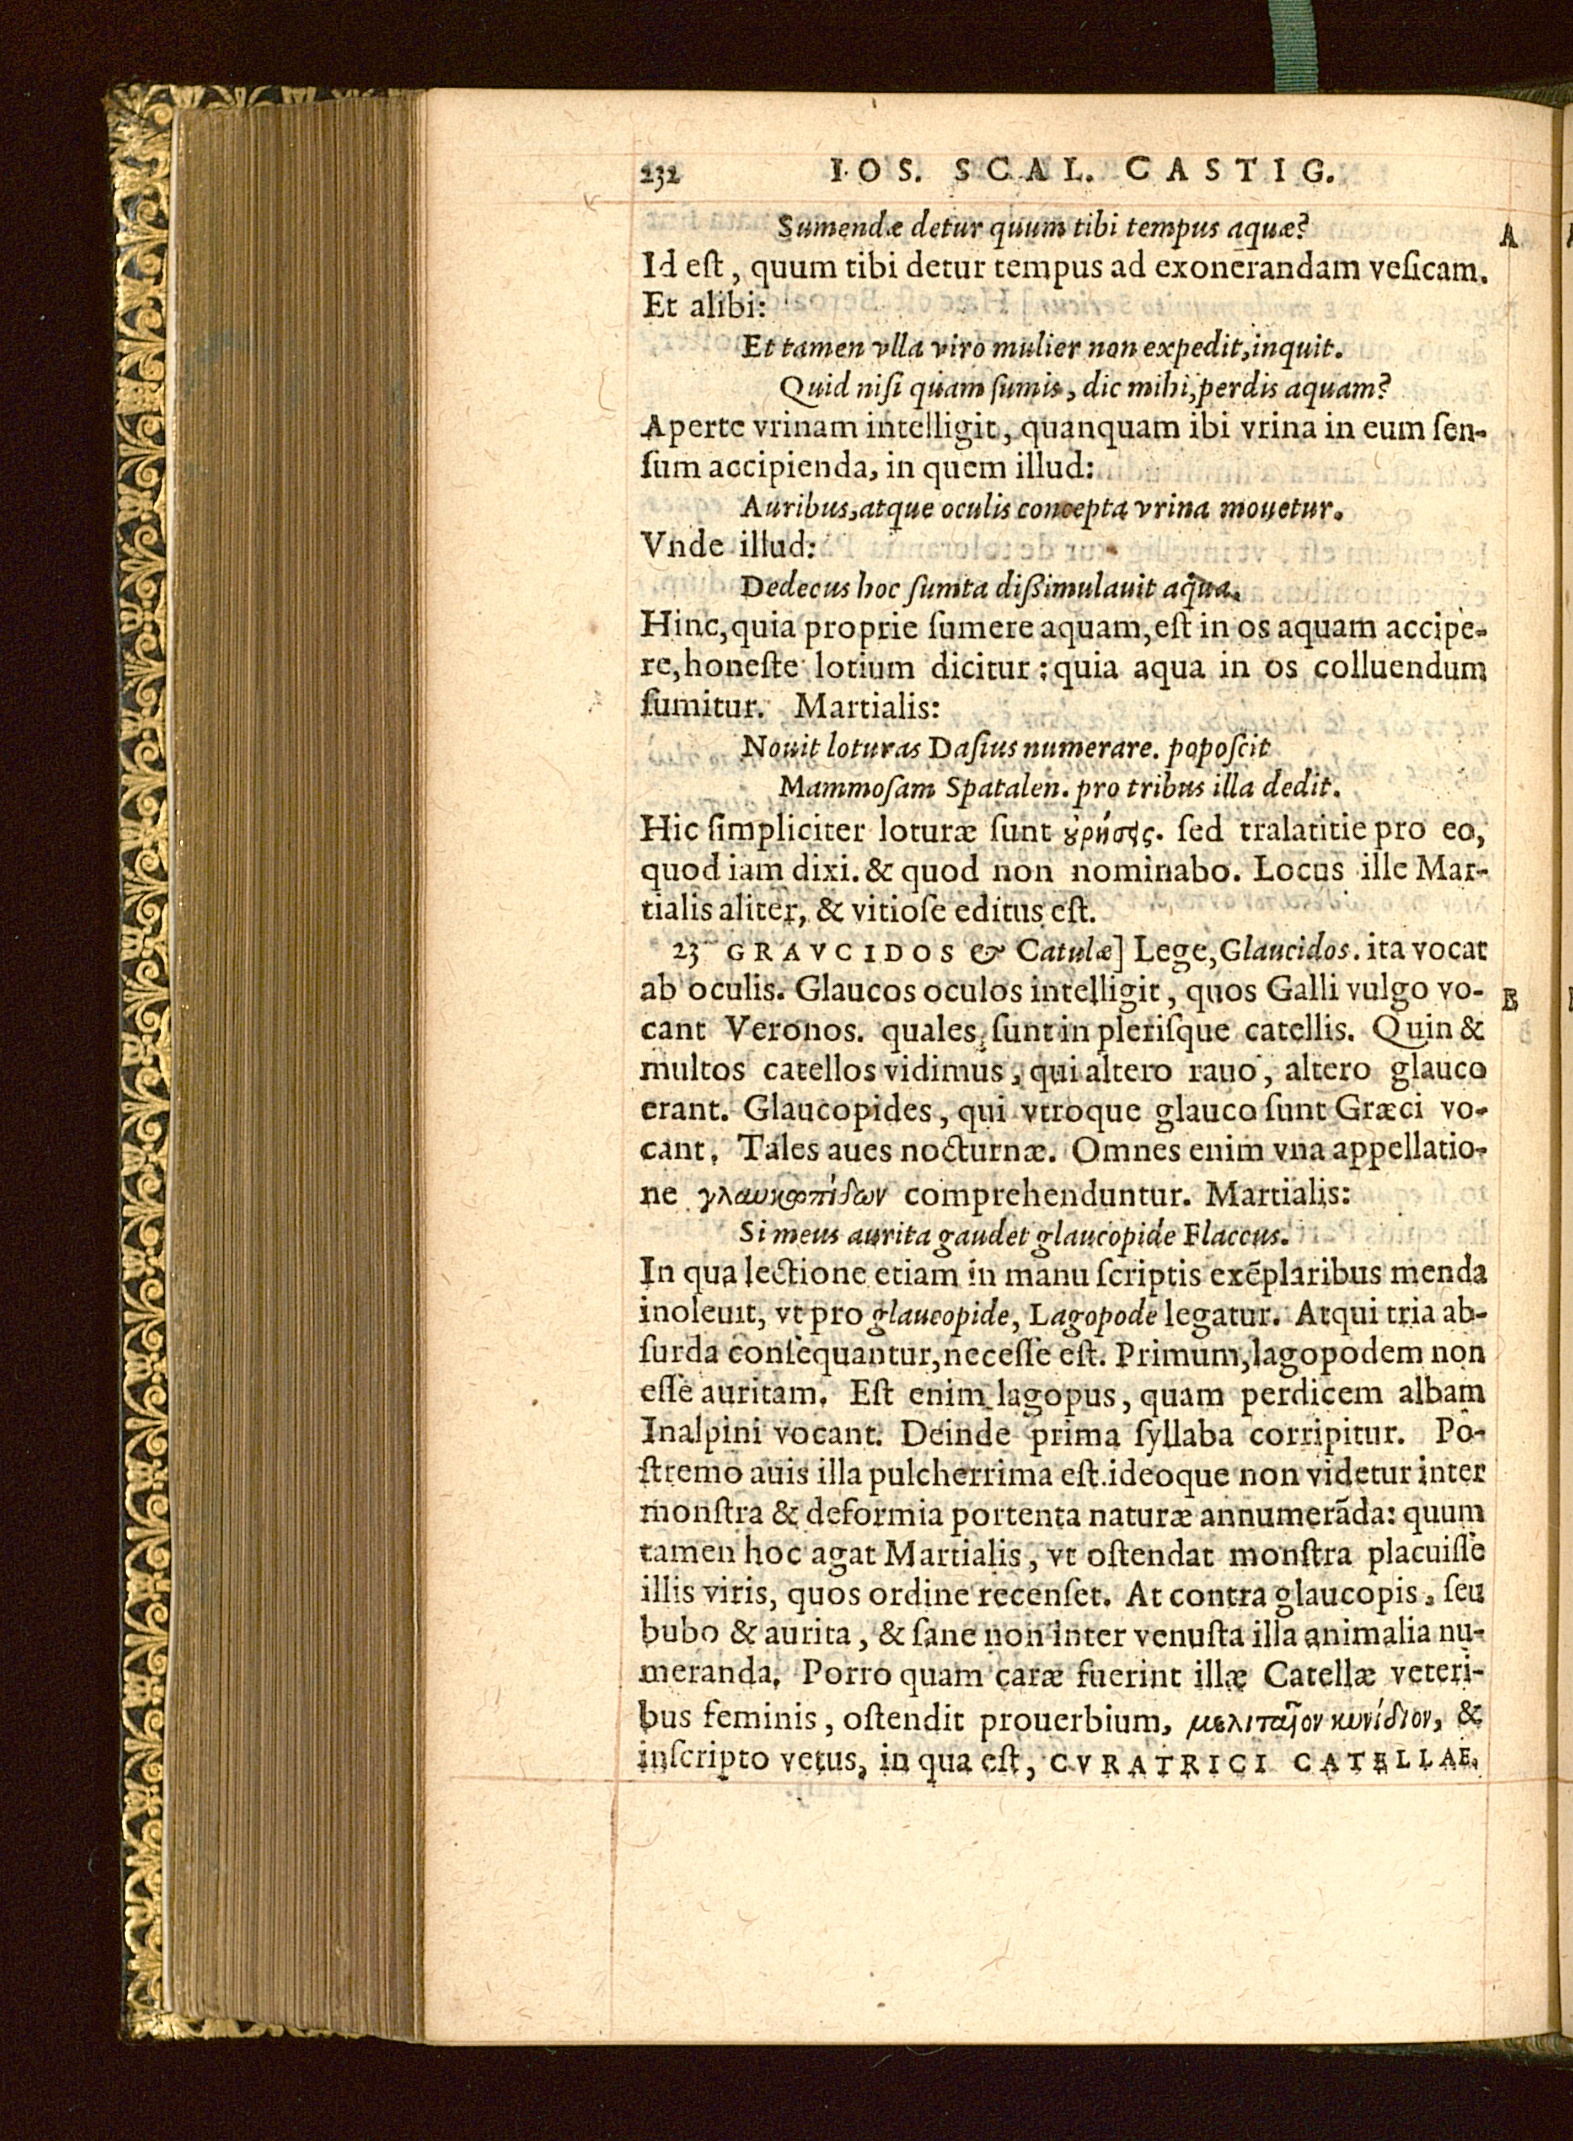 232 IOS. SCAL. CASTIG.
Sumendæ detur quum tibi tempus aquæ?
A
Id eſt, quum tibi detur tempus ad exonerandam veſicam.
Et alibi:
Et tamen vlla viro mulier non expedit, inquit.
Quid niſi quam ſumis, dic mihi, perdis aquam?
Aperte vrinam intelligit, quanquam ibi vrina in eum ſen-
ſum accipienda, in quem illud:
Auribus, atque oculis concepta vrina mouetur.
Vnde illud:
Dedecus hoc ſumta dißimulauit aqua.
Hinc, quia proprie ſumere aquam, eſt in os aquam accipe-
re, honeſte lotium dicitur: quia aqua in os colluendum
ſumitur. Martialis:
Nouit loturas Daſius numerare. popoſcit
Mammoſam Spatalen. pro tribus illa dedit.
Hic ſimpliciter loturæ ſunt ȣ̓ρήσεις. ſed tralatitie pro eo,
quod iam dixi. & quod non nominabo. Locus ille Mar-
tialis aliter, & vitioſe editus eſt.
23 GRAVCIDOS & Catulæ] Lege, Glaucidos. ita vocat
ab oculis. Glaucos oculos intelligit, quos Galli vulgo vo-
B
cant Veronos. quales ſunt in pleriſque catellis. Quin &
multos catellos vidimus, qui altero rauo, altero glauco
erant. Glaucopides, qui vtroque glauco ſunt Græci vo-
cant. Tales aues nocturnæ. Omnes enim vna appellatio-
ne γλαυκωπίδων comprehenduntur. Martialis:
Si meus aurita gaudet glaucopide Flaccus.
In qua lectione etiam in manu ſcriptis exẽplaribus menda
inoleuit, vt pro glaucopide, Lagopode legatur. Atqui tria ab-
ſurda conſequantur, neceſſe eſt. Primum, lagopodem non
eſſe auritam. Eſt enim lagopus, quam perdicem albam
Inalpini vocant. Deinde prima ſyllaba corripitur. Po-
ſtremo auis illa pulcherrima eſt. ideoque non videtur inter
monſtra & deformia portenta naturæ annumerãda: quum
tamen hoc agat Martialis, vt oſtendat monſtra placuiſſe
illis viris, quos ordine recenſet. At contra glaucopis, ſeu
bubo & aurita, & ſane non inter venuſta illa animalia nu-
meranda. Porro quam caræ fuerint illæ Catellæ veteri-
bus feminis, oſtendit prouerbium, μελιταῖον κυνίδιον, &
inſcripto vetus, in qua eſt, CVRATRICI CATELLAE.